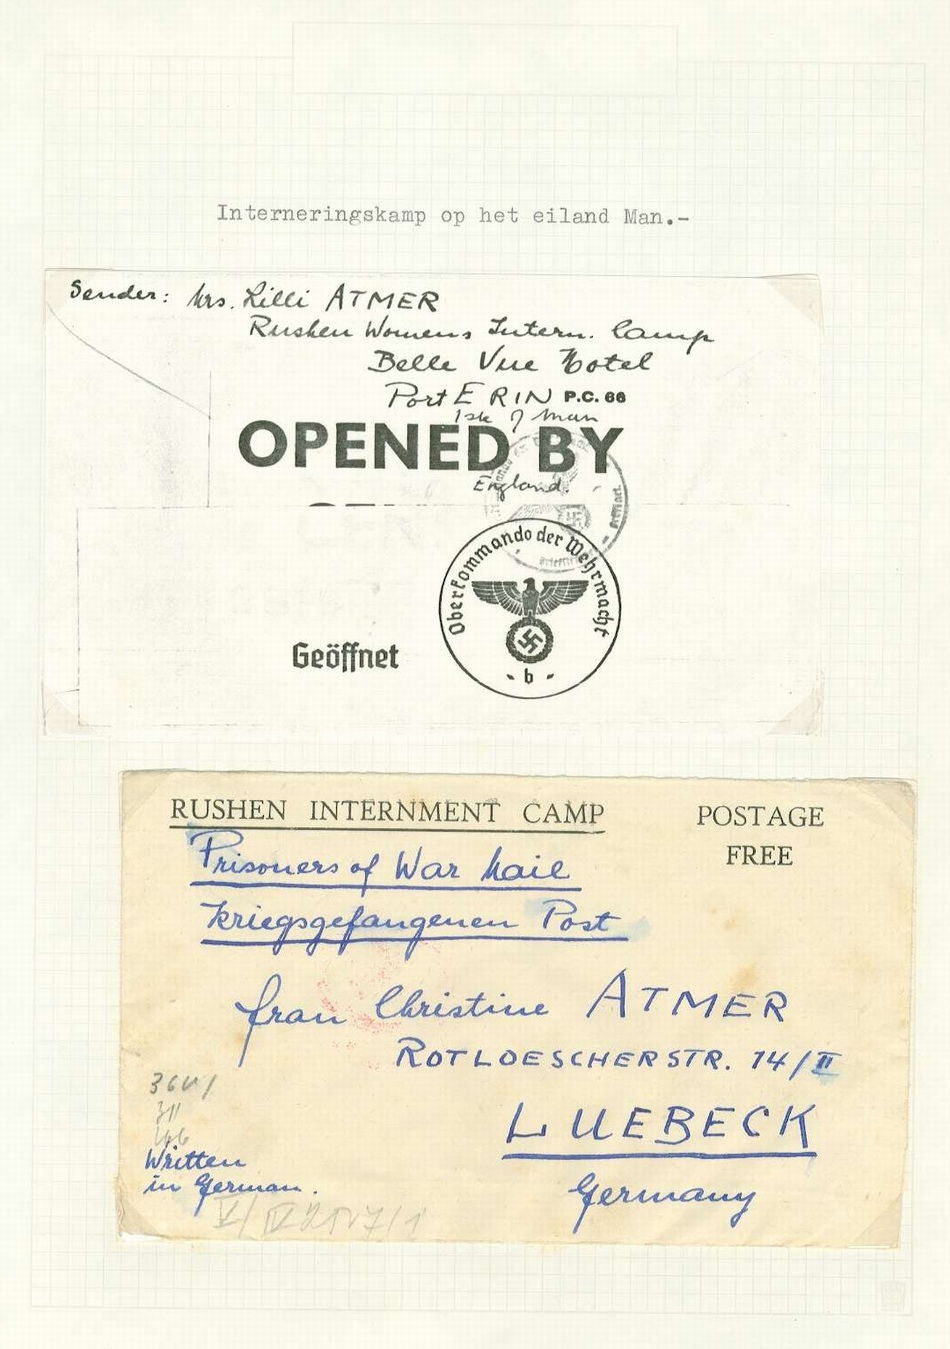 Interneringskamp op het eiland Man.-
Sender: Mrs. Lilli ATMER
Rushen Womens Intern. Camp
Belle Vue Hotel
Port ERIN P.C. 66
Isle of Man
OPENED BY
England.
Oberkommando der Wehrmacht
Geöffnet
- b -
RUSHEN INTERNMENT CAMP
POSTAGE
FREE
Prisoners of War Mail
Kriegsgefangenen Post
Frau Christine ATMER
ROTLOESCHERSTR. 14/II
LUEBECK
Written
in German.
Germany